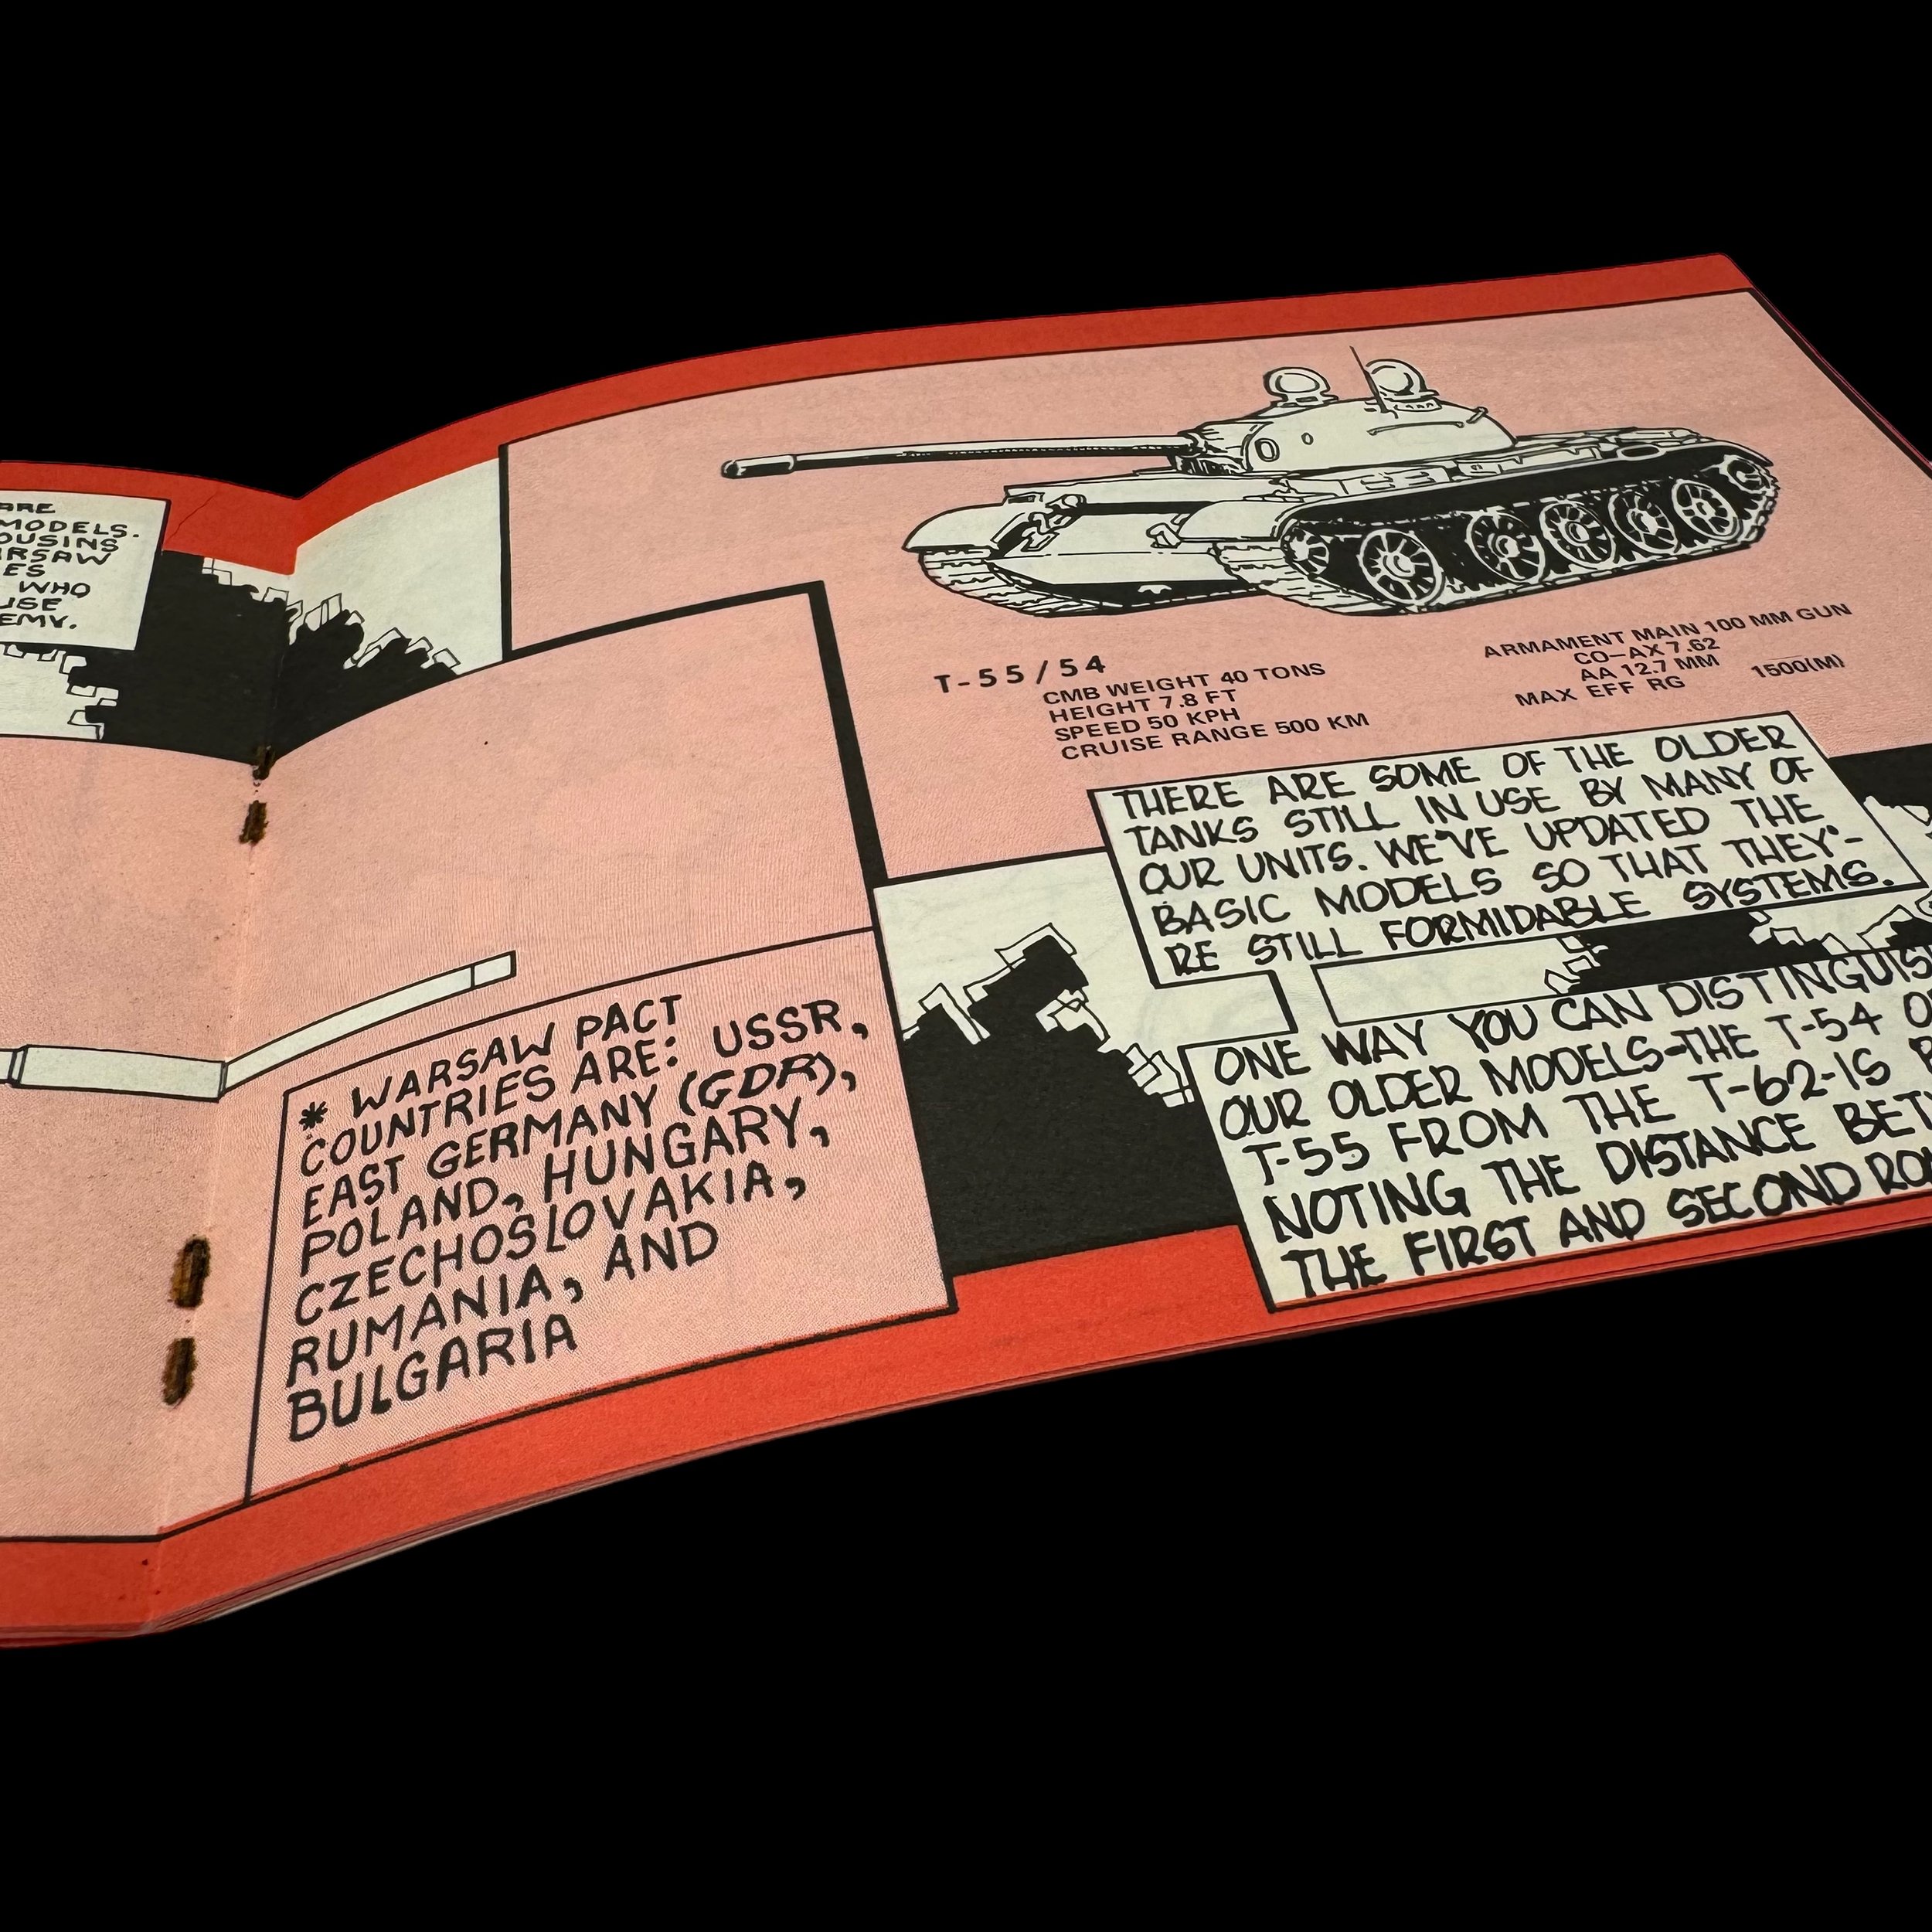 ARE
MODELS.
WHO
* WARSAW PACT
COUNTRIES ARE: USSR,
EAST GERMANY (GDR),
POLAND, HUNGARY,
CZECHOSLOVAKIA,
RUMANIA, AND
BULGARIA
T-55/54
CMB WEIGHT 40 TONS
HEIGHT 7.8 FT
SPEED 50 KPH
CRUISE RANGE 500 KM
ARMAMENT MAIN 100 MM GUN
CO-AX 7.62
AA 12.7 MM
MAX EFF RG 1500(M)
THERE ARE SOME OF THE OLDER
TANKS STILL IN USE BY MANY OF
OUR UNITS. WE'VE UPDATED THE
BASIC MODELS SO THAT THEY'-
RE STILL FORMIDABLE SYSTEMS.
ONE WAY YOU CAN DISTINGUIS
OUR OLDER MODELS-THE T-54 O
T-55 FROM THE T-62-IS
NOTING THE DISTANCE BET
THE FIRST AND SECOND ROA